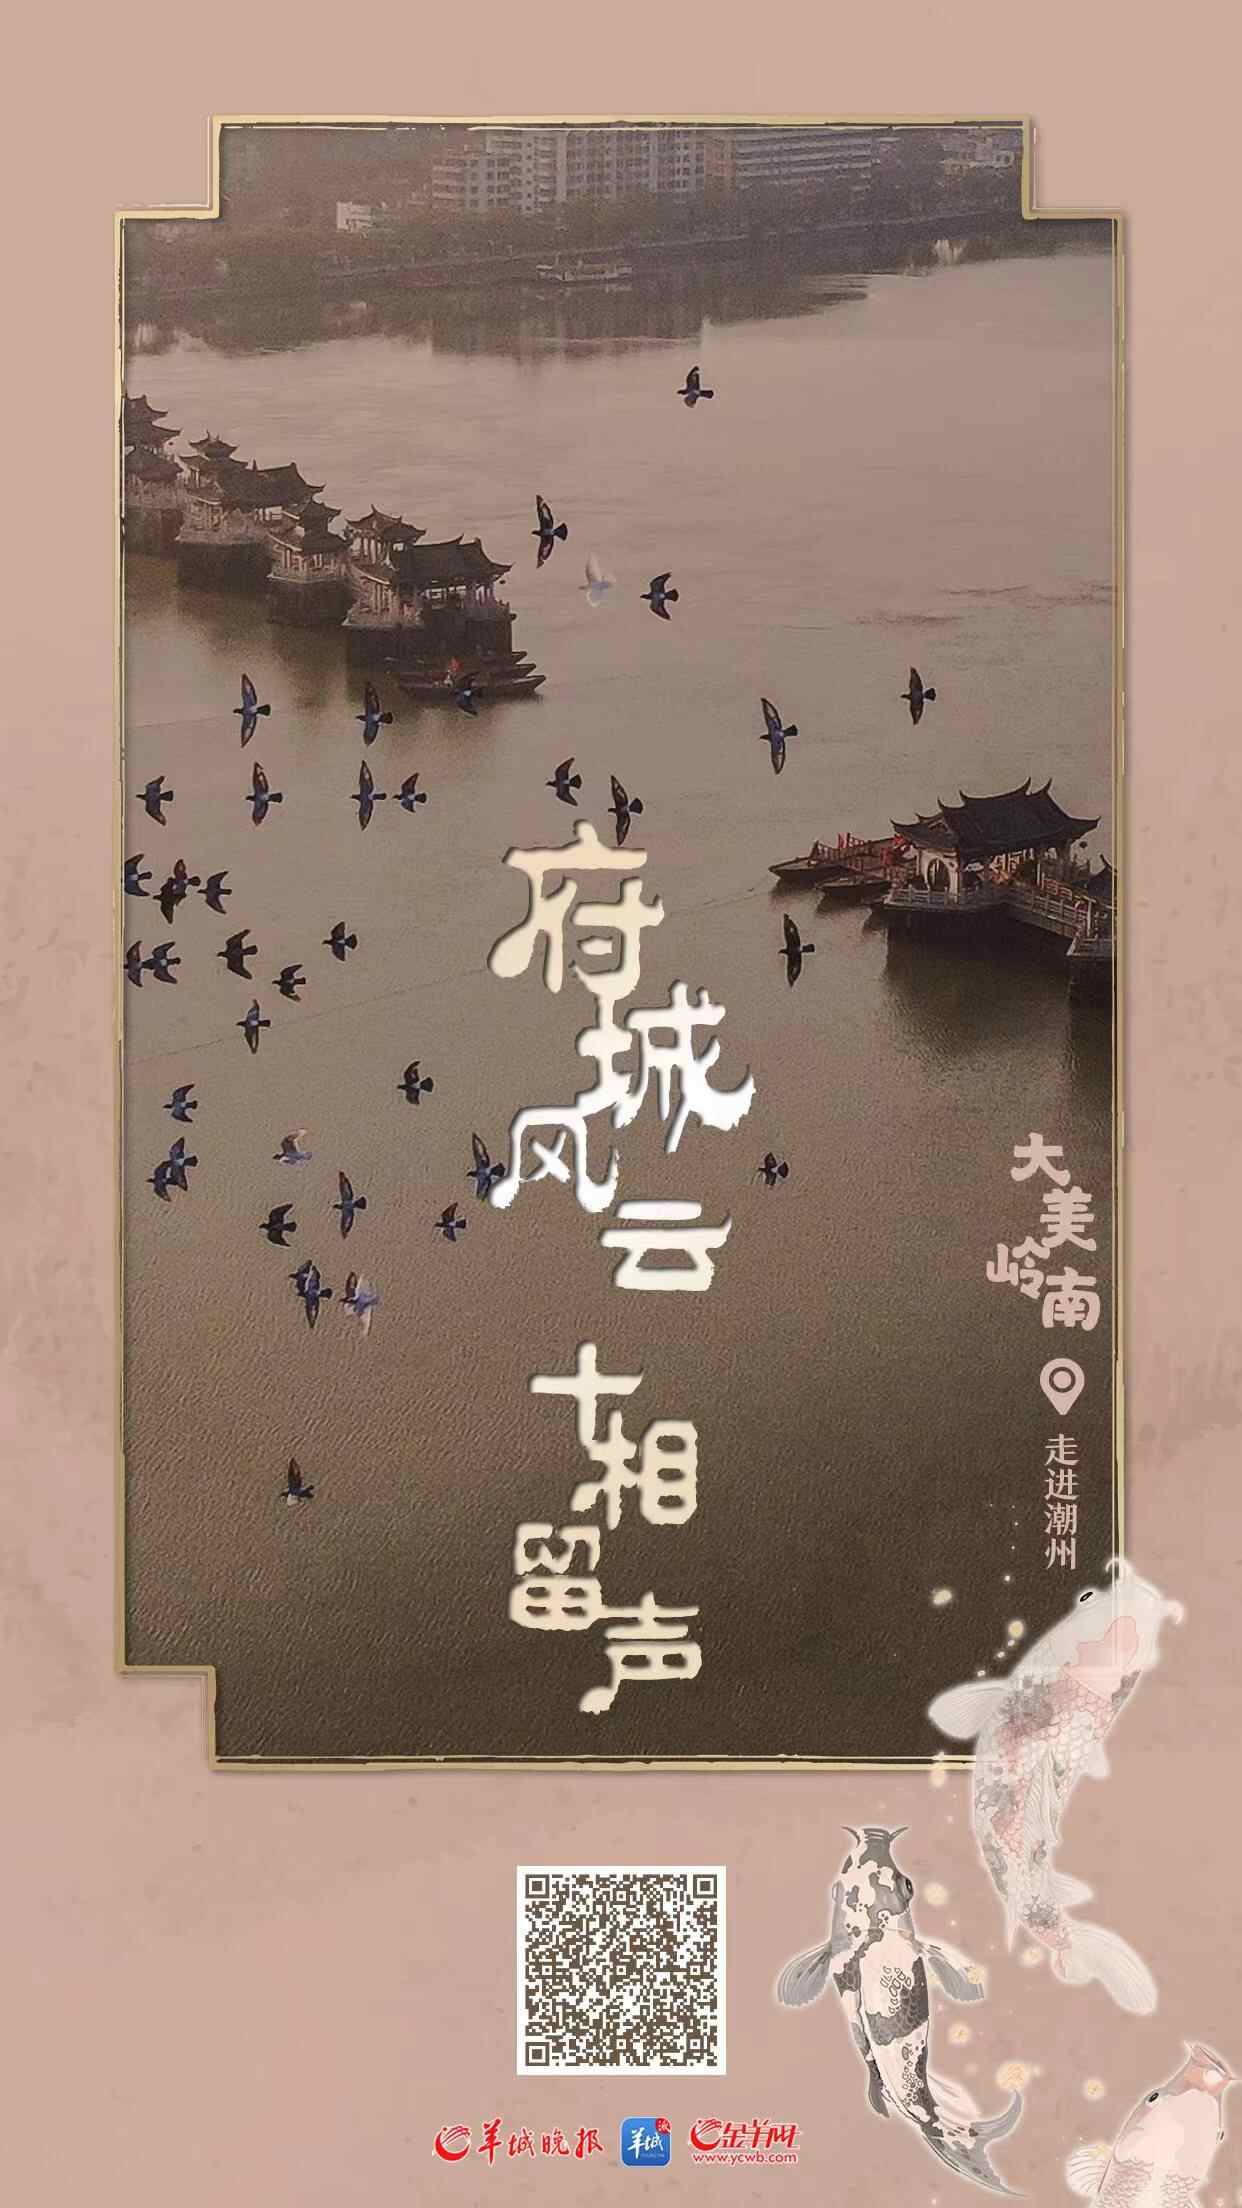 府城风云
十相留声
大美岭南
走进潮州
羊城晚报
羊城
派
金羊网
www.ycwb.com